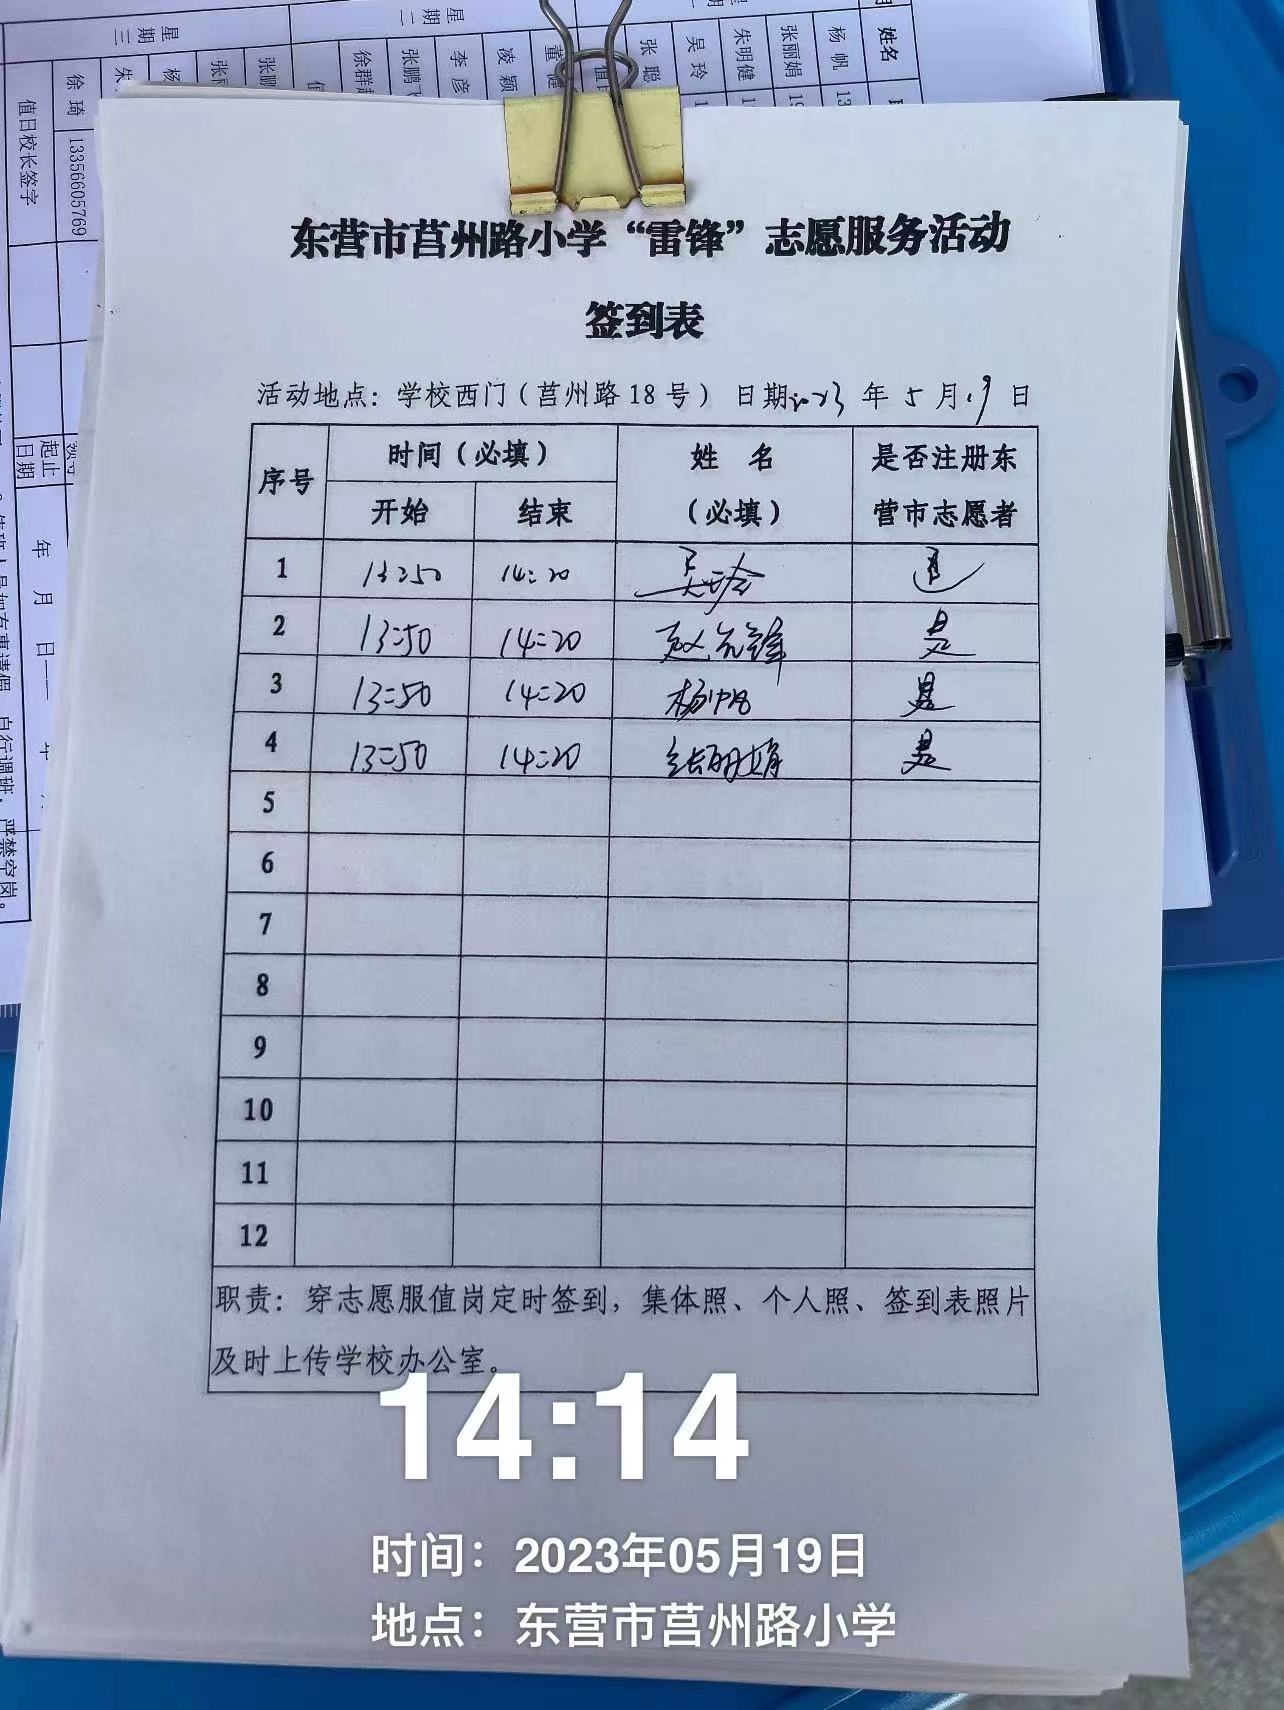 姓名
杨 帆
张丽娟
朱明健
吴 玲
张 聪
凌 颖
李 彦
张鹏飞
徐 琦 13356605769
值日校长签字
起止
日期
东营市莒州路小学“雷锋”志愿服务活动
签到表
活动地点：学校西门（莒州路 18 号） 日期2023 年 5 月 19 日
序号 时间（必填） 姓 名 是否注册东
开始 结束 （必填） 营市志愿者
1 13:50 14:20 吴玲 是
2 13:50 14:20 赵允锋 是
3 13:50 14:20 杨帆 是
4 13:50 14:20 张丽娟 是
5
6
7
8
9
10
11
12
职责：穿志愿服值岗定时签到，集体照、个人照、签到表照片
及时上传学校办公室。
14:14
时间：2023年05月19日
地点：东营市莒州路小学